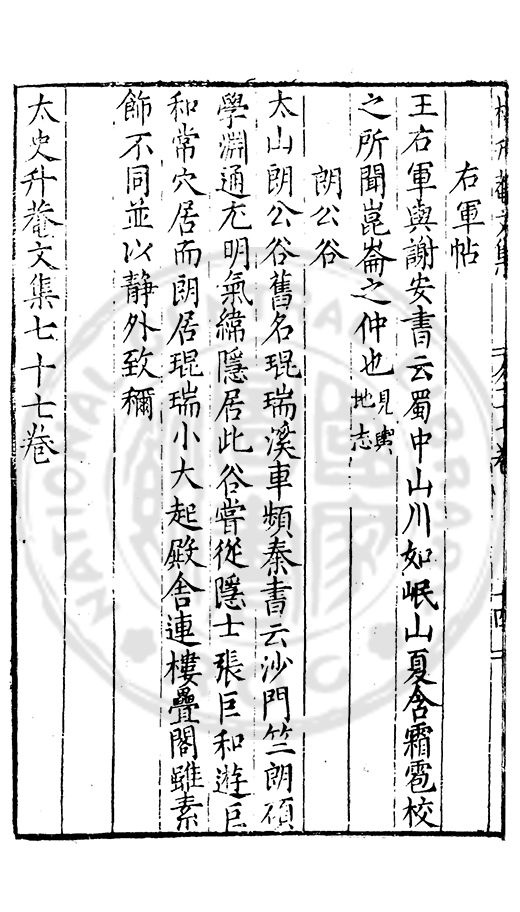 右軍帖
王右軍與謝安書云蜀中山川如岷山夏含霜雹校
之所聞崑崙之仲也見輿地志
朗公谷
太山朗公谷舊名琨瑞溪車頻秦書云沙門竺朗碩
學淵通尤明氣緯隱居此谷嘗從隱士張巨和遊巨
和常穴居而朗居琨瑞小大起殿舍連樓疊閣雖素
飾不同並以靜外致稱
太史升菴文集七十七卷